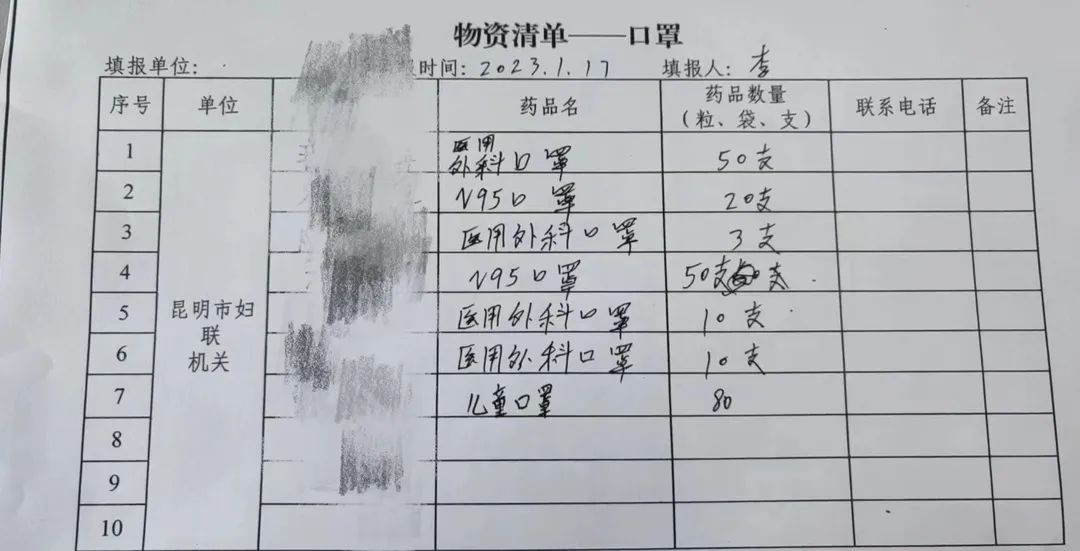 物资清单——口罩
填报单位: 报时间: 2023.1.17 填报人: 李
序号 单位 药品名 药品数量 联系电话 备注
（粒、袋、支）
1 医用外科口罩 50支
2 N95口罩 20支
3 医用外科口罩 3支
4 N95口罩 50支 支
5 昆明市妇 医用外科口罩 10支
联
6 机关 医用外科口罩 10支
7 儿童口罩 80
8
9
10